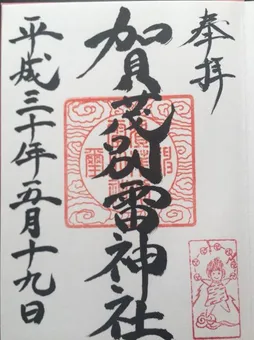 奉拝
賀茂別雷神社
平成三十年五月十九日